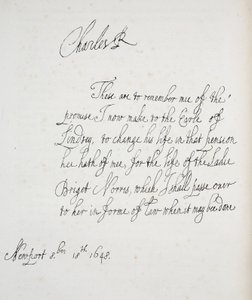 Charles R
These are to remember me of the
promise I now make to the Earle of
Lindsey, to change his life in that pension
hee hath of me, for the life of the Ladie
Briget Norris, which I shall passe over
to her in forme of Law when it may bee done
Newport 8ber 18th 1648.